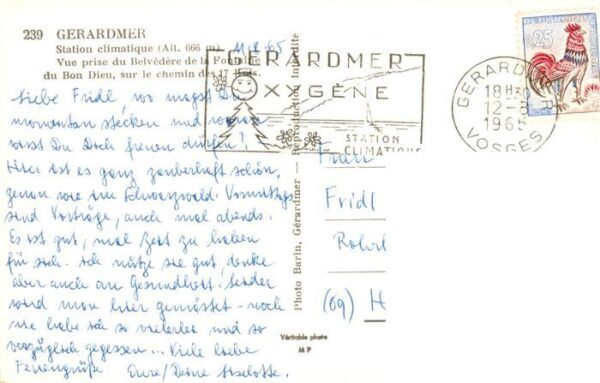 239 GERARDMER
Station climatique (Alt. 666 m)
Vue prise du Belvédère de la Fontaine
du Bon Dieu, sur le chemin des 17 Kms.
11.8.65
Liebe Fridl, wo magst Du
momentan stecken und worauf
wirst Du Dich freuen dürfen?
Hier ist es ganz zauberhaft schön,
genau wie im Schwarzwald. Vormittags
sind Vorträge, auch mal abends.
Es ist gut, mal Zeit zu haben
für sich. Ich nütze sie gut, denke
aber auch an Gesundheit. Leider
wird man hier gemästet - noch
nie habe ich so vielerlei und so
vorzüglich gegessen... Viele liebe
Feriengrüße Eure/Deine Liselotte.
GERARDMER
OXYGÈNE
STATION
CLIMATIQUE
GERARDMER
18H
12-8
1965
VOSGES
0,25
Photo Barin, Gérardmer — Reproduction Interdite
Véritable photo
M P
Frau
Fridl
Rohrl
(69) H